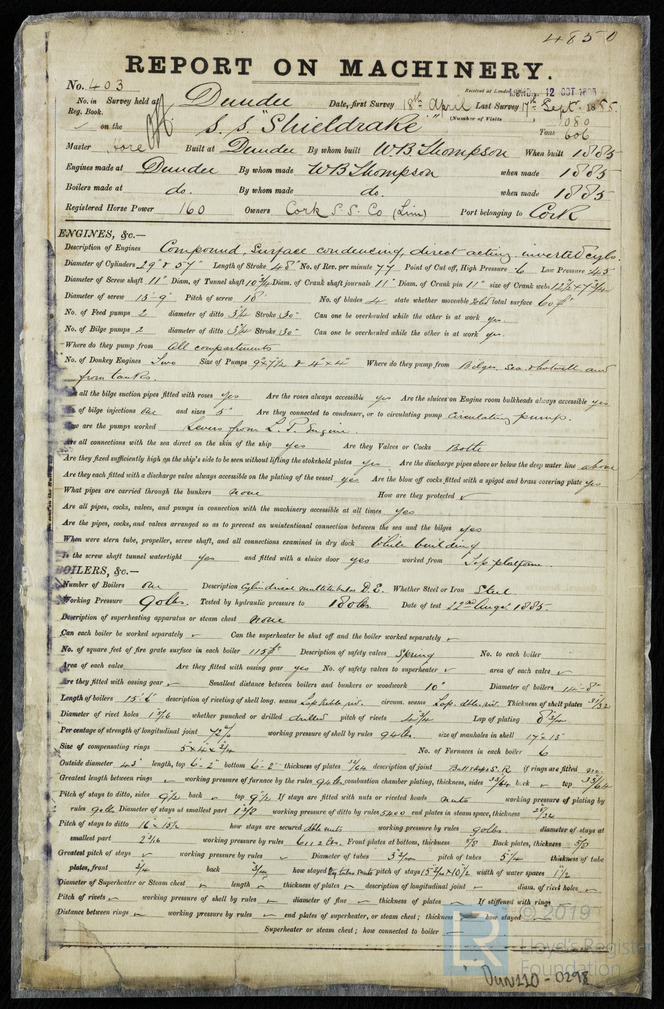 4850
REPORT ON MACHINERY.
No. 403 Received at London 12 OCT 1885
No. in Survey held at Dundee Date, first Survey 18th April Last Survey 17th Sept. 1885
Reg. Book. (Number of Visits
on the S. S. "Shieldrake" Tons 1080 606
Master Hore Built at Dundee By whom built W B Thompson When built 1885
Engines made at Dundee By whom made W B Thompson when made 1885
Boilers made at do. By whom made do. when made 1885
Registered Horse Power 160 Owners Cork S. S. Co (Lim) Port belonging to Cork
ENGINES, &c.—
Description of Engines Compound, Surface condensing, direct acting inverted cyls.
Diameter of Cylinders 29" & 57" Length of Stroke 48" No. of Rev. per minute 77 Point of Cut off, High Pressure .6 Low Pressure .45
Diameter of Screw shaft 11" Diam. of Tunnel shaft 10¾ Diam. of Crank shaft journals 11" Diam. of Crank pin 11" size of Crank webs
Diameter of screw 15-9" Pitch of screw 18 No. of blades 4 state whether moveable total surface 60
No. of Feed pumps 2 diameter of ditto 3¾ Stroke 30" Can one be overhauled while the other is at work yes.
No. of Bilge pumps 2 diameter of ditto 3¾ Stroke 30" Can one be overhauled while the other is at work yes.
Where do they pump from All compartments
No. of Donkey Engines Two Size of Pumps & 4" x 4" Where do they pump from Bilges, sea, hotwell and
from tanks.
all the bilge suction pipes fitted with roses yes Are the roses always accessible yes Are the sluices on Engine room bulkheads always accessible yes
of bilge injections One and sizes 5" Are they connected to condenser, or to circulating pump circulating pump.
How are the pumps worked Levers from L. P. Engine.
Are all connections with the sea direct on the skin of the ship yes Are they Valves or Cocks Both
Are they fixed sufficiently high on the ship's side to be seen without lifting the stokehold plates yes Are the discharge pipes above or below the deep water line above
Are they each fitted with a discharge valve always accessible on the plating of the vessel yes Are the blow off cocks fitted with a spigot and brass covering plate yes
What pipes are carried through the bunkers none How are they protected
Are all pipes, cocks, valves, and pumps in connection with the machinery accessible at all times yes
Are the pipes, cocks, and valves arranged so as to prevent an unintentional connection between the sea and the bilges yes
When were stern tube, propeller, screw shaft, and all connections examined in dry dock While building
Is the screw shaft tunnel watertight yes and fitted with a sluice door yes worked from Top platform
BOILERS, &c.—
Number of Boilers One Description Cylindrical multitubular D.E. Whether Steel or Iron Steel
Working Pressure 90 lbs. Tested by hydraulic pressure to 180 lbs. Date of test 22nd Augt 1885.
Description of superheating apparatus or steam chest none
Can each boiler be worked separately Can the superheater be shut off and the boiler worked separately
No. of square feet of fire grate surface in each boiler 115 Description of safety valves Spring No. to each boiler
Area of each valve Are they fitted with easing gear yes No. of safety valves to superheater area of each valve
Are they fitted with easing gear Smallest distance between boilers and bunkers or woodwork 10" Diameter of boilers
Length of boilers 15'6" description of riveting of shell long. seams circum. seams Lap. dble. riv. Thickness of shell plates
Diameter of rivet holes 1 3/16 whether punched or drilled drilled pitch of rivets Lap of plating
Per centage of strength of longitudinal joint working pressure of shell by rules size of manholes in shell 17 x 13
Size of compensating rings 5 x 4 x ¾ No. of Furnaces in each boiler 6
Outside diameter 43" length, top 6'-2" bottom 6'-2" thickness of plates description of joint if rings are fitted
Greatest length between rings working pressure of furnace by the rules combustion chamber plating, thickness, sides back top
Pitch of stays to ditto, sides 9½ back top 9½ If stays are fitted with nuts or riveted heads nuts working pressure of plating by
rules 90 lbs Diameter of stays at smallest part working pressure of ditto by rules 5400 end plates in steam space, thickness
Pitch of stays to ditto 16 x 15½ how stays are secured dble nuts working pressure by rules 90 lbs diameter of stays at
smallest part working pressure by rules Front plates at bottom, thickness Back plates, thickness 5/8
Greatest pitch of stays working pressure by rules Diameter of tubes pitch of tubes thickness of tube
plates, front ¾ back how stayed pitch of stays width of water spaces
Diameter of Superheater or Steam chest length thickness of plates description of longitudinal joint diam. of rivet holes
Pitch of rivets working pressure of shell by rules diameter of flue thickness of plates If stiffened with rings
Distance between rings working pressure by rules end plates of superheater, or steam chest; thickness how stayed
Superheater or steam chest; how connected to boiler
© 2019
Lloyd's Register
Foundation
DUN220-0298